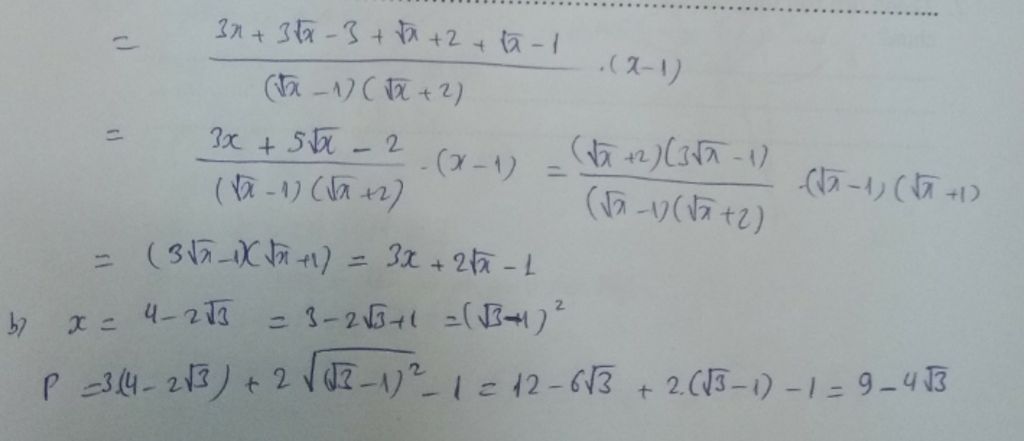 = (3x + 3√x - 3 + √x + 2 + √x - 1) / ((√x - 1)(√x + 2)) . (x - 1)
= (3x + 5√x - 2) / ((√x - 1)(√x + 2)) . (x - 1) = ((√x + 2)(3√x - 1)) / ((√x - 1)(√x + 2)) . (√x - 1)(√x + 1)
= (3√x - 1)(√x + 1) = 3x + 2√x - 1
b) x = 4 - 2√3 = 3 - 2√3 + 1 = (√3 - 1)²
P = 3(4 - 2√3) + 2√((√3 - 1)²) - 1 = 12 - 6√3 + 2.(√3 - 1) - 1 = 9 - 4√3